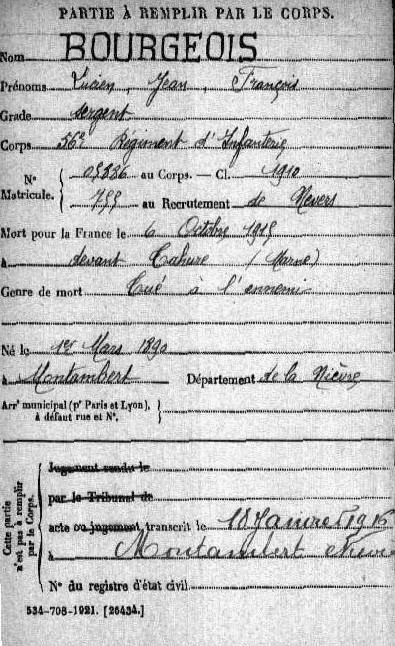 PARTIE À REMPLIR PAR LE CORPS.
Nom BOURGEOIS
Prénoms Lucien, Jean, François
Grade sergent
Corps 56e Régiment d'Infanterie
N° Matricule. { 05886 au Corps. — Cl. 1910
755 au Recrutement de Nevers
Mort pour la France le 6 Octobre 1915
à devant Tahure (Marne)
Genre de mort Tué à l'ennemi
Né le 1er Mars 1890
à Montambert Département de la Nièvre
Arrt municipal (pr Paris et Lyon), à défaut rue et N°. {
Cette partie n'est pas à remplir par le Corps. {
Jugement rendu le
par le Tribunal de
acte ou jugement transcrit le 18 Janvier 1916
à Montambert Nièvre
N° du registre d'état civil
534-708-1921. [26434.]